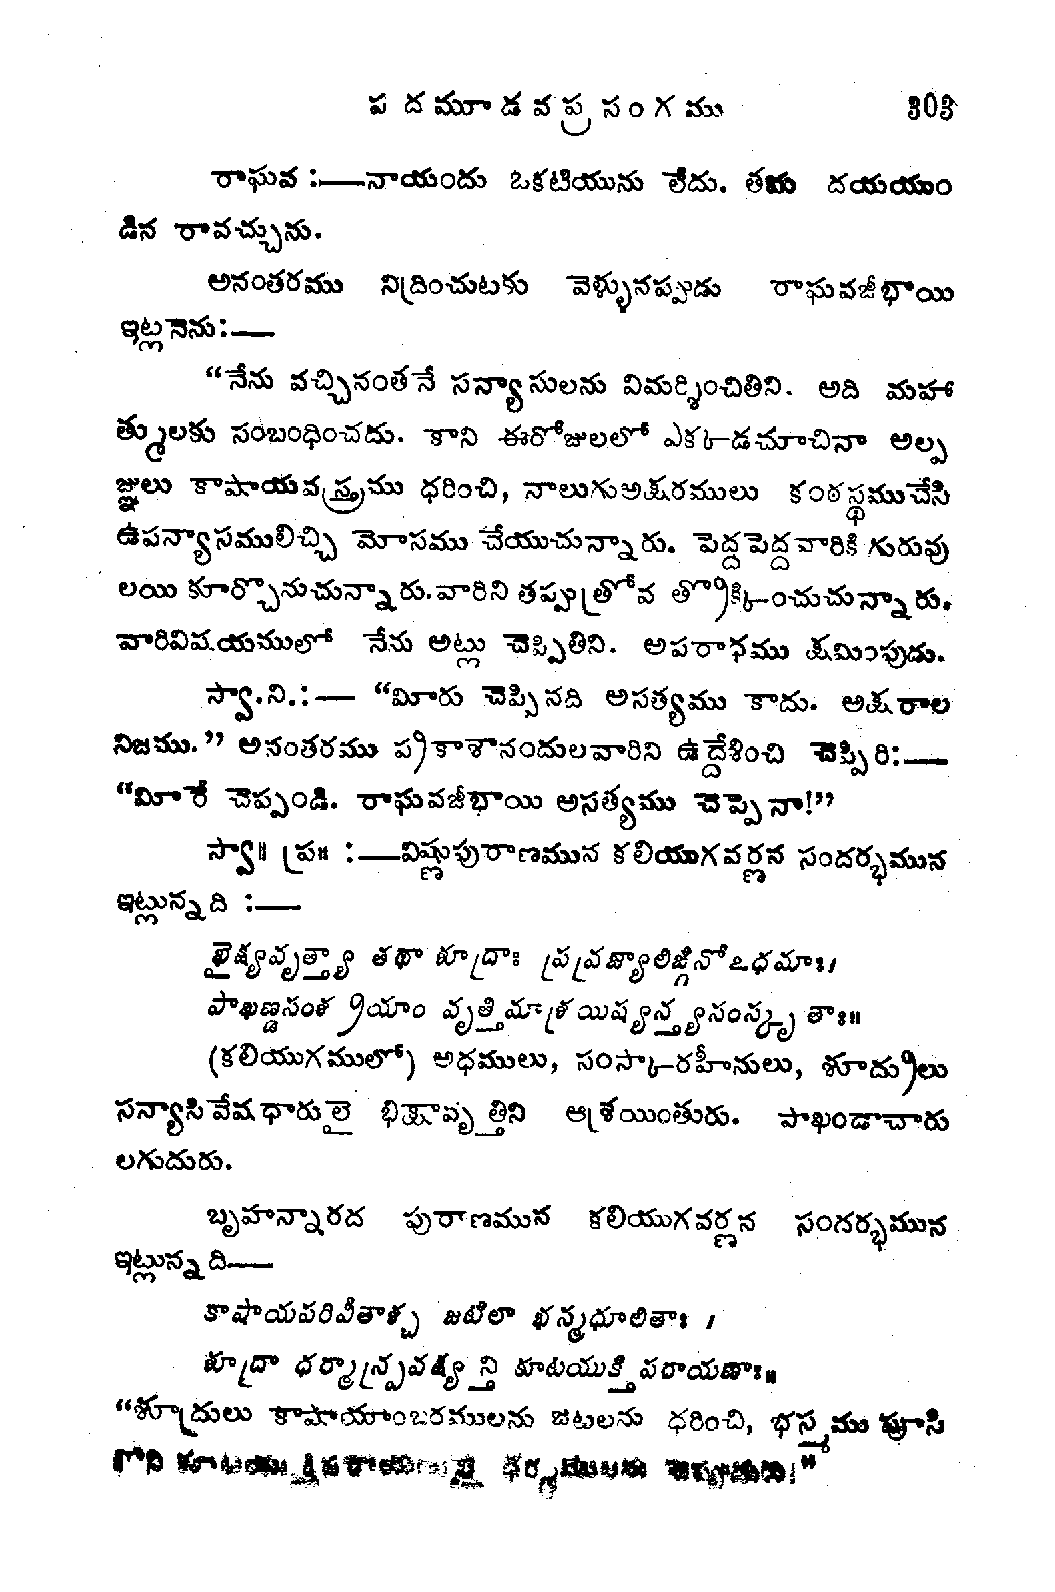 పదమూడవప్రసంగము 303
రాఘవ :—నాయందు ఒకటియును లేదు. తమ దయయుం
డిన రావచ్చును.
అనంతరము నిద్రించుటకు వెళ్ళునప్పుడు రాఘవజీభాయి
ఇట్లనెను:—
“నేను వచ్చినంతనే సన్యాసులను విమర్శించితిని. అది మహా
త్ములకు సంబంధించదు. కాని ఈరోజులలో ఎక్కడచూచినా అల్ప
జ్ఞులు కాషాయవస్త్రము ధరించి, నాలుగుఅక్షరములు కంఠస్థముచేసి
ఉపన్యాసములిచ్చి మోసము చేయుచున్నారు. పెద్దపెద్దవారికి గురువు
లయి కూర్చొనుచున్నారు.వారిని తప్పుత్రోవ త్రొక్కించుచున్నారు.
వారివిషయములో నేను అట్లు చెప్పితిని. అపరాధము క్షమింపుడు.
స్వా.ని.:— “మీరు చెప్పినది అసత్యము కాదు. అక్షరాల
నిజము.” అనంతరము ప్రకాశానందులవారిని ఉద్దేశించి చెప్పిరి:—
“మీరే చెప్పండి. రాఘవజీభాయి అసత్యము చెప్పెనా!”
స్వా॥ ప్ర॥ :—విష్ణుపురాణమున కలియుగవర్ణన సందర్భమున
ఇట్లున్నది :—
భైక్ష్యవృత్త్యా తథా శూద్రాః ప్రవ్రజ్యాలిఙ్గినోఽధమాః।
పాఖణ్డసంశ్రియాం వృత్తిమాశ్రయిష్యన్త్యసంస్కృతాః॥
(కలియుగములో) అధములు, సంస్కారహీనులు, శూద్రులు
సన్యాసివేషధారులై భిక్షావృత్తిని ఆశ్రయింతురు. పాఖండాచారు
లగుదురు.
బృహన్నారద పురాణమున కలియుగవర్ణన సందర్భమున
ఇట్లున్నది—
కాషాయపరివీతాశ్చ జటిలా భస్మధూలితాః ।
శూద్రా ధర్మాన్ప్రవక్ష్యన్తి కూటయుక్తిపరాయణాః॥
“శూద్రులు కాషాయాంబరములను జటలను ధరించి, భస్మము పూసి
గొని కూటయుక్తిపరాయణులై ధర్మములను చెప్పుదురు!”